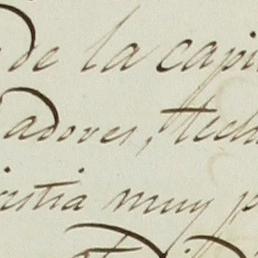 de la capi
adores, tecla
istia muy p